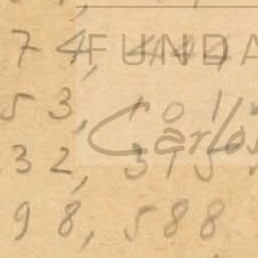 74, 444
FUNDA
53, 101
Carlos
32, 315
98, 588